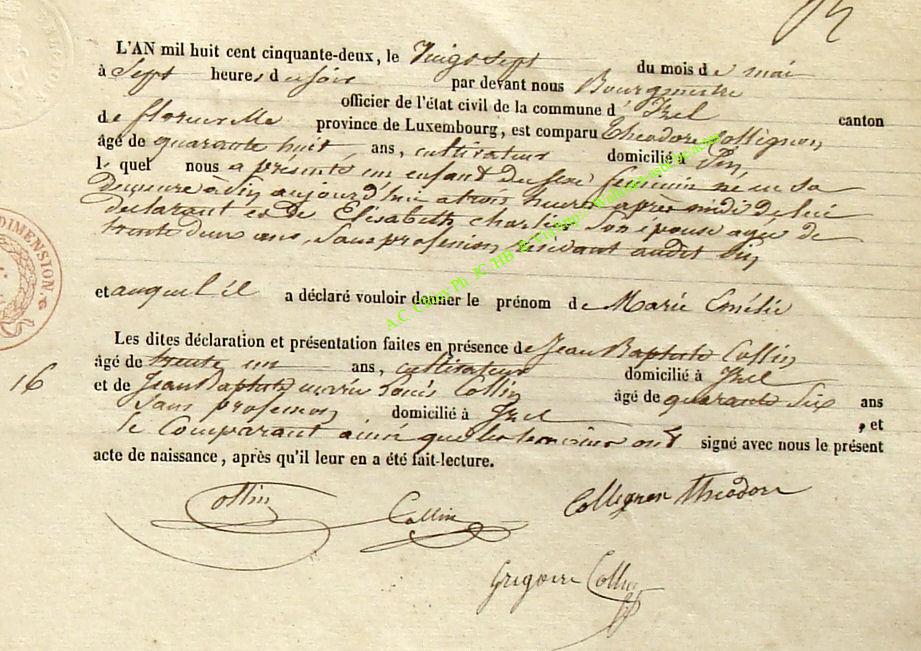 L'AN mil huit cent cinquante-deux, le Vingt sept du mois de mai
à Sept heures du soir par devant nous Bourgmestre
officier de l'état civil de la commune d'Izel canton
de florenville province de Luxembourg, est comparu Théodore Collignon
âgé de quarante huit ans, cultivateur domicilié à Pin
lequel nous a présenté un enfant du sexe féminin né en sa
demeure à Pin aujourd'hui à trois heures après midi de lui
déclarant et de Elisabeth son épouse agée de
trente deux ans, sans profession, résidant audit Pin
et auquel il a déclaré vouloir donner le prénom de Marie Emélie
Les dites déclaration et présentation faites en présence de Jean Baptiste Collin
âgé de trente un ans, cultivateur domicilié à Izel
16
et de Jean Baptiste marie Louis Collin âgé de quarante six ans
sans profession domicilié à Izel, et
le Comparant ainsi que les temoins ont signé avec nous le présent
acte de naissance, après qu'il leur en a été fait lecture.
Collin Collin Collignon Théodore
Grégoire Collin
DIMENSION